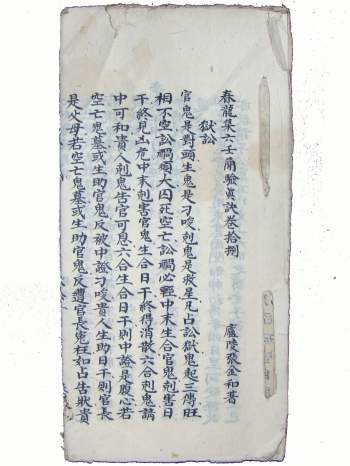 春龍集六壬簡驗真訣卷拾捌
廬陵張金和著
獄訟
官鬼是對頭生鬼是刁唆剋鬼是救星凡占訟獄鬼起三傳旺
相不空訟禍須大囚死空亡訟禍心輕中末生合官鬼剋害日
干終見凶危中末剋害官鬼生合日干終得消散六合剋鬼請
中可和貴人剋鬼告官可息六合生合日干則中證是腹心若
空亡鬼墓或生助官鬼反被中證刁唆貴人生助日干則官長
是父母若空亡鬼墓或生助官鬼反遭官長冤枉如占告狀貴